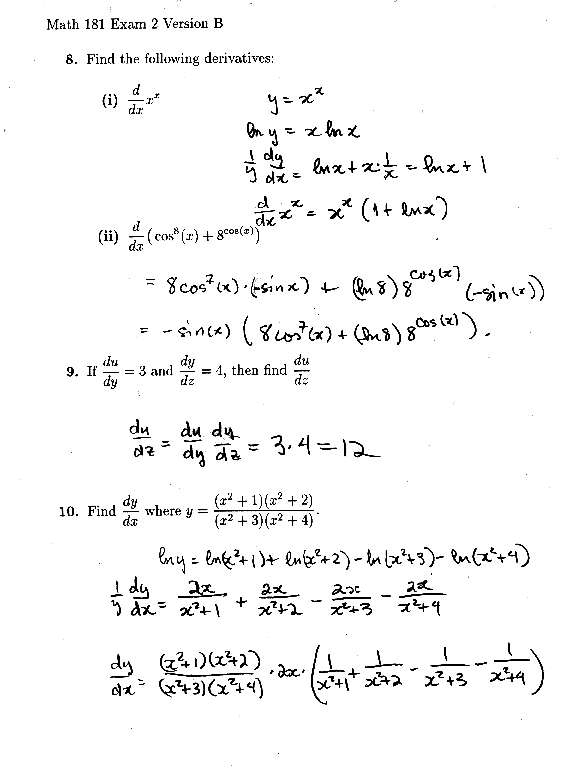 Math 181 Exam 2 Version B
8. Find the following derivatives:
(i) d/dx x^x
y = x^x
ln y = x ln x
1/y dy/dx = ln x + x · 1/x = ln x + 1
d/dx x^x = x^x (1 + ln x)
(ii) d/dx (cos^8(x) + 8^cos(x))
= 8cos^7(x)·(-sin x) + (ln 8) 8^cos(x) (-sin(x))
= -sin(x) (8cos^7(x) + (ln 8) 8^cos(x)).
9. If du/dy = 3 and dy/dz = 4, then find du/dz
du/dz = du/dy dy/dz = 3·4 = 12
10. Find dy/dx where y = (x^2 + 1)(x^2 + 2) / (x^2 + 3)(x^2 + 4).
ln y = ln(x^2+1) + ln(x^2+2) - ln(x^2+3) - ln(x^2+4)
1/y dy/dx = 2x/x^2+1 + 2x/x^2+2 - 2x/x^2+3 - 2x/x^2+4
dy/dx = (x^2+1)(x^2+2) / (x^2+3)(x^2+4) · 2x · (1/x^2+1 + 1/x^2+2 - 1/x^2+3 - 1/x^2+4)